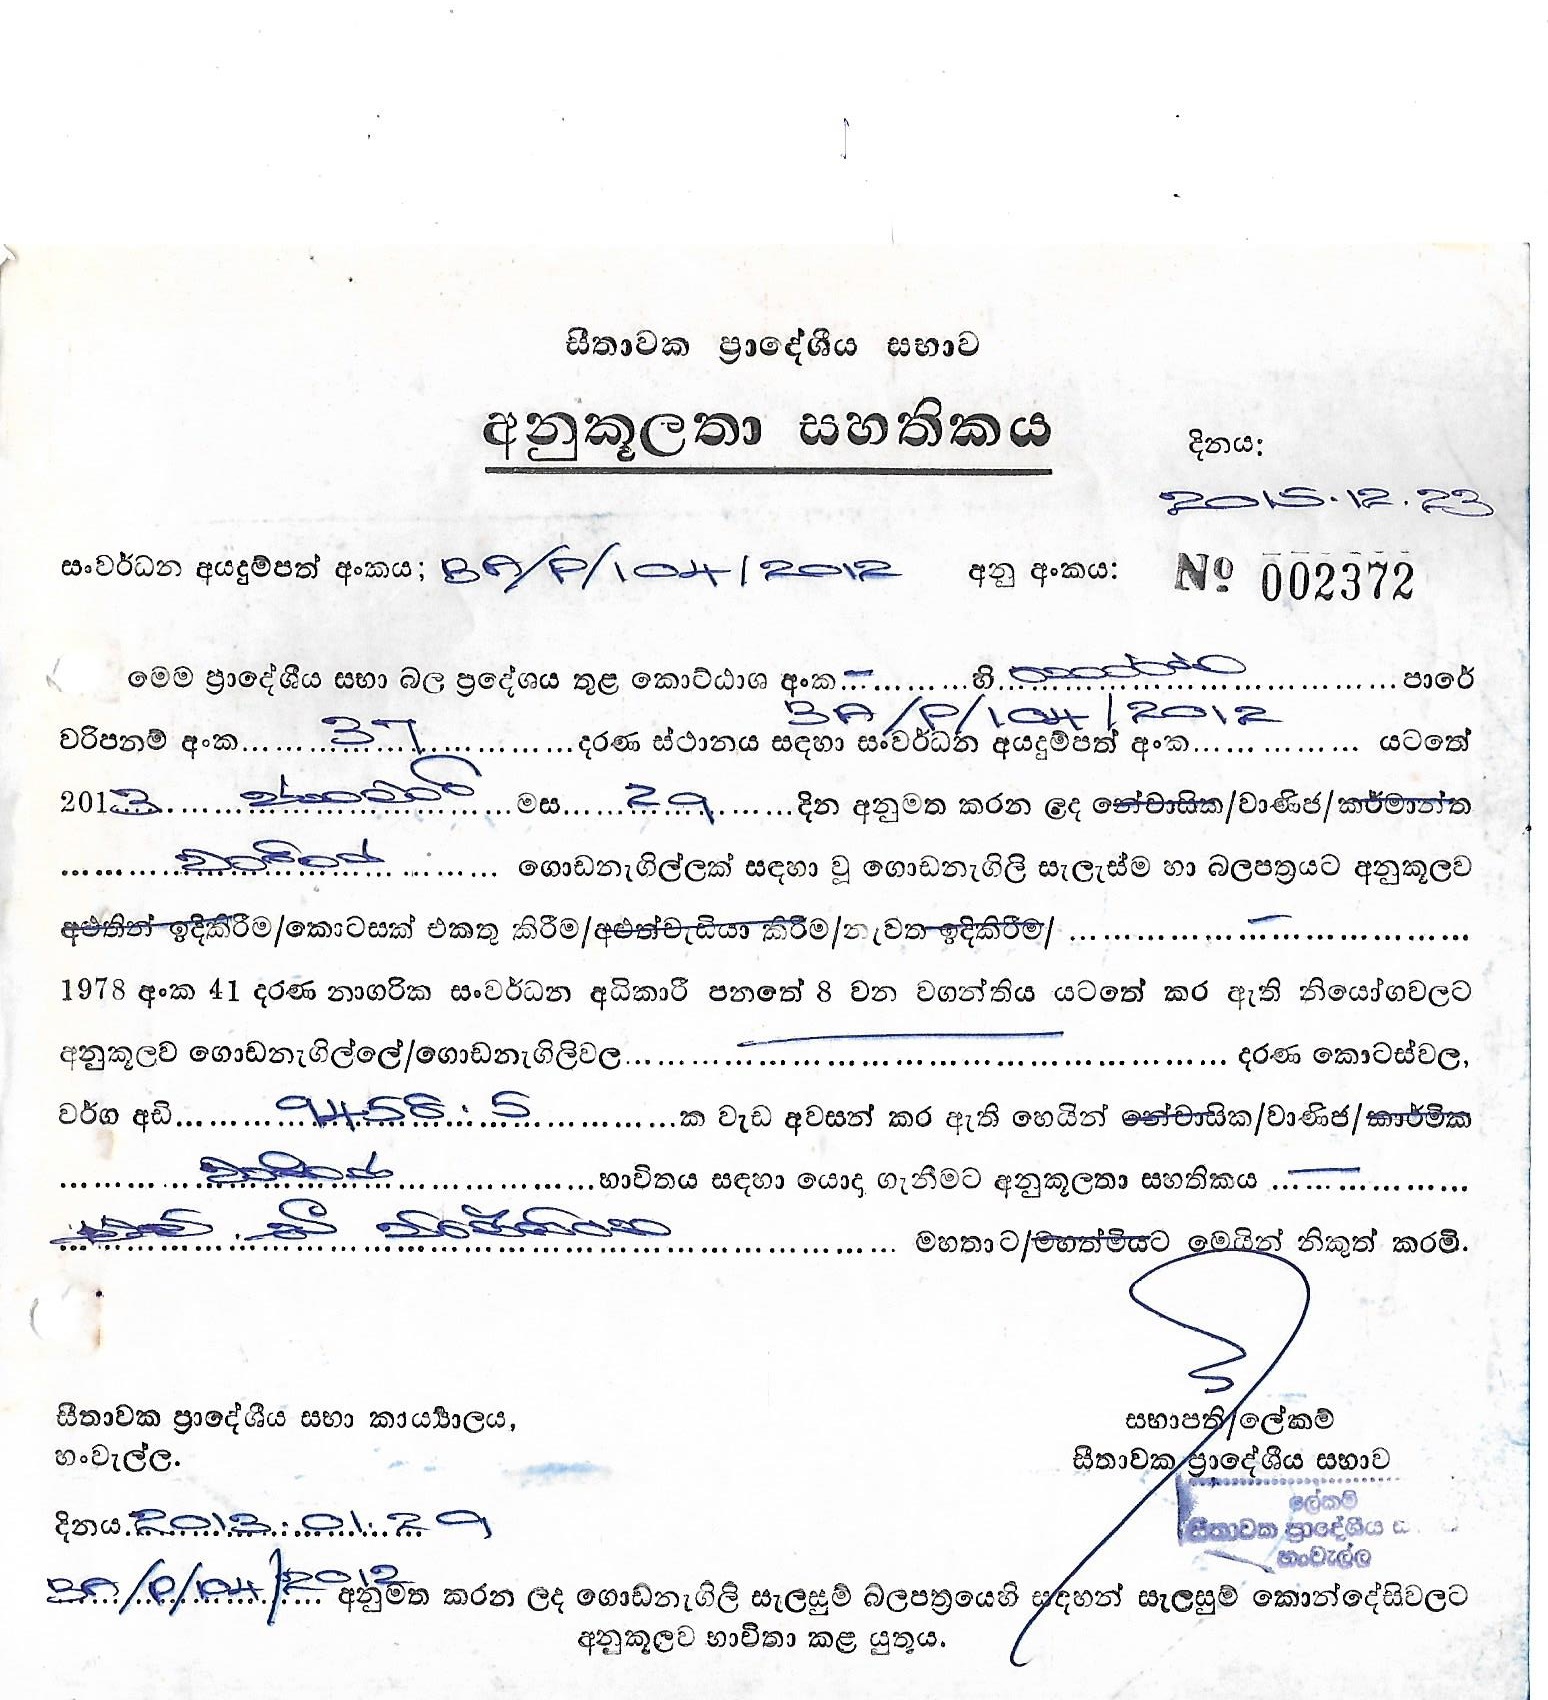 සීතාවක ප්‍රාදේශීය සභාව
අනුකූලතා සහතිකය
දිනය:
2015.12.23
සංවර්ධන අයදුම්පත් අංකය; BA/P/104/2012 අනු අංකය: № 002372
මෙම ප්‍රාදේශීය සභා බල ප්‍රදේශය තුළ කොට්ඨාශ අංක – හි පාරේ
වරිපනම් අංක 37 දරණ ස්ථානය සඳහා සංවර්ධන අයදුම්පත් අංක BA/P/104/2012 යටතේ
2013 ජනවාරි මස 29 දින අනුමත කරන ලද නේවාසික/වාණිජ/කර්මාන්ත
ගොඩනැගිල්ලක් සඳහා වූ ගොඩනැගිලි සැලැස්ම හා බලපත්‍රයට අනුකූලව
අළුතින් ඉදිකිරීම/කොටසක් එකතු කිරීම/අළුත්වැඩියා කිරීම/නැවත ඉදිකිරීම/ –
1978 අංක 41 දරණ නාගරික සංවර්ධන අධිකාරී පනතේ 8 වන වගන්තිය යටතේ කර ඇති නියෝගවලට
අනුකූලව ගොඩනැගිල්ලේ/ගොඩනැගිලිවල දරණ කොටස්වල,
වර්ග අඩි 9458.5 ක වැඩ අවසන් කර ඇති හෙයින් නේවාසික/වාණිජ/කාර්මික
භාවිතය සඳහා යොදා ගැනීමට අනුකූලතා සහතිකය –
මහතාට/මහත්මියට මෙයින් නිකුත් කරමි.
සීතාවක ප්‍රාදේශීය සභා කාර්‍ය්‍යාලය,
හංවැල්ල.
සභාපති/ලේකම්
සීතාවක ප්‍රාදේශීය සභාව
ලේකම්
සීතාවක ප්‍රාදේශීය
හංවැල්ල
දිනය 2013.01.29
BA/P/104/2012 අනුමත කරන ලද ගොඩනැගිලි සැලසුම් බලපත්‍රයෙහි සඳහන් සැලසුම් කොන්දේසිවලට
අනුකූලව භාවිතා කළ යුතුය.